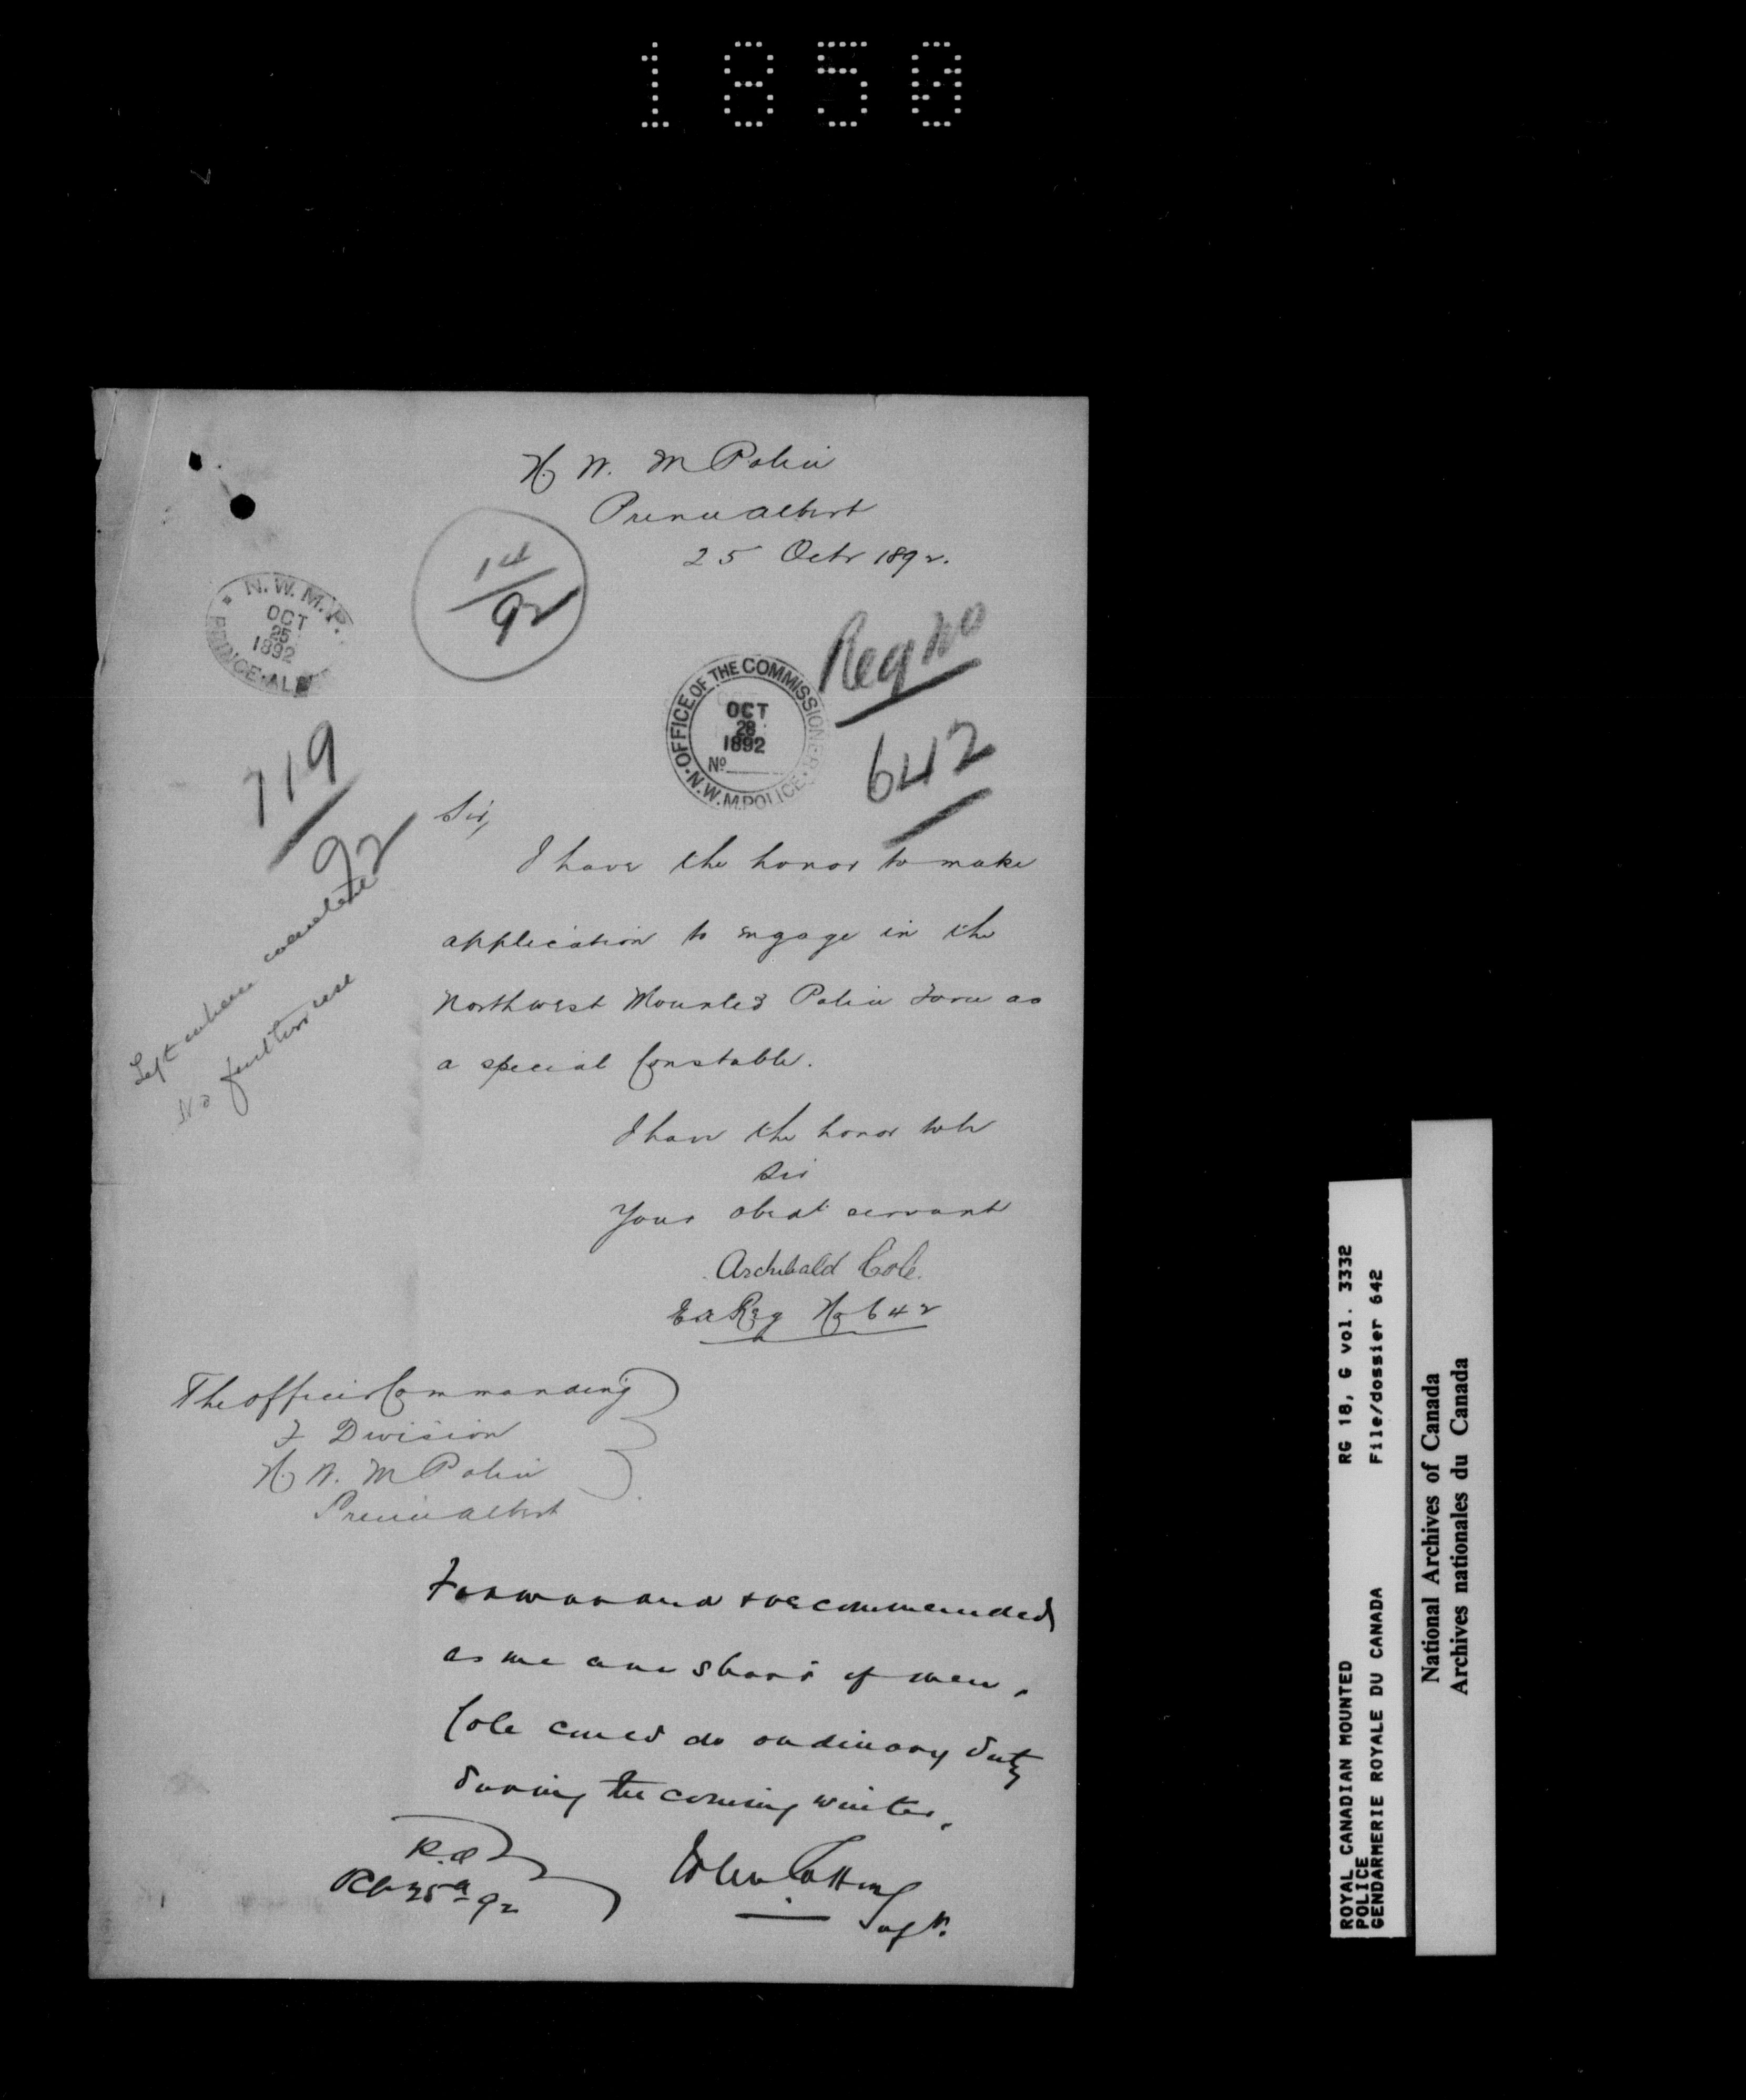 1850
N. W. M Police
Prince Albert
25 Octr 1892.
14
92
N.W.M.P.
OCT
25
1892
PRINCE-ALB
Reg No
642
OFFICE OF THE COMMISSIONER
OCT
28
1892
No
N.W.M.POLICE
719
92
Sir,
I have the honor to make
application to engage in the
Northwest Mounted Police Force as
a special Constable.
Left when
No further use
I have the honor to be
Sir
Your obedt servant
Archibald Cole.
Ex Reg No 642
The officer Commanding
F Division
N. W. M Police
Prince Albert
Forward & recommended
as we are short of men.
Cole could do ordinary duty
during the coming winter.
P.A
25th 92
Supt.
ROYAL CANADIAN MOUNTED RG 18, G vol. 3332
POLICE File/dossier 642
GENDARMERIE ROYALE DU CANADA
National Archives of Canada
Archives nationales du Canada